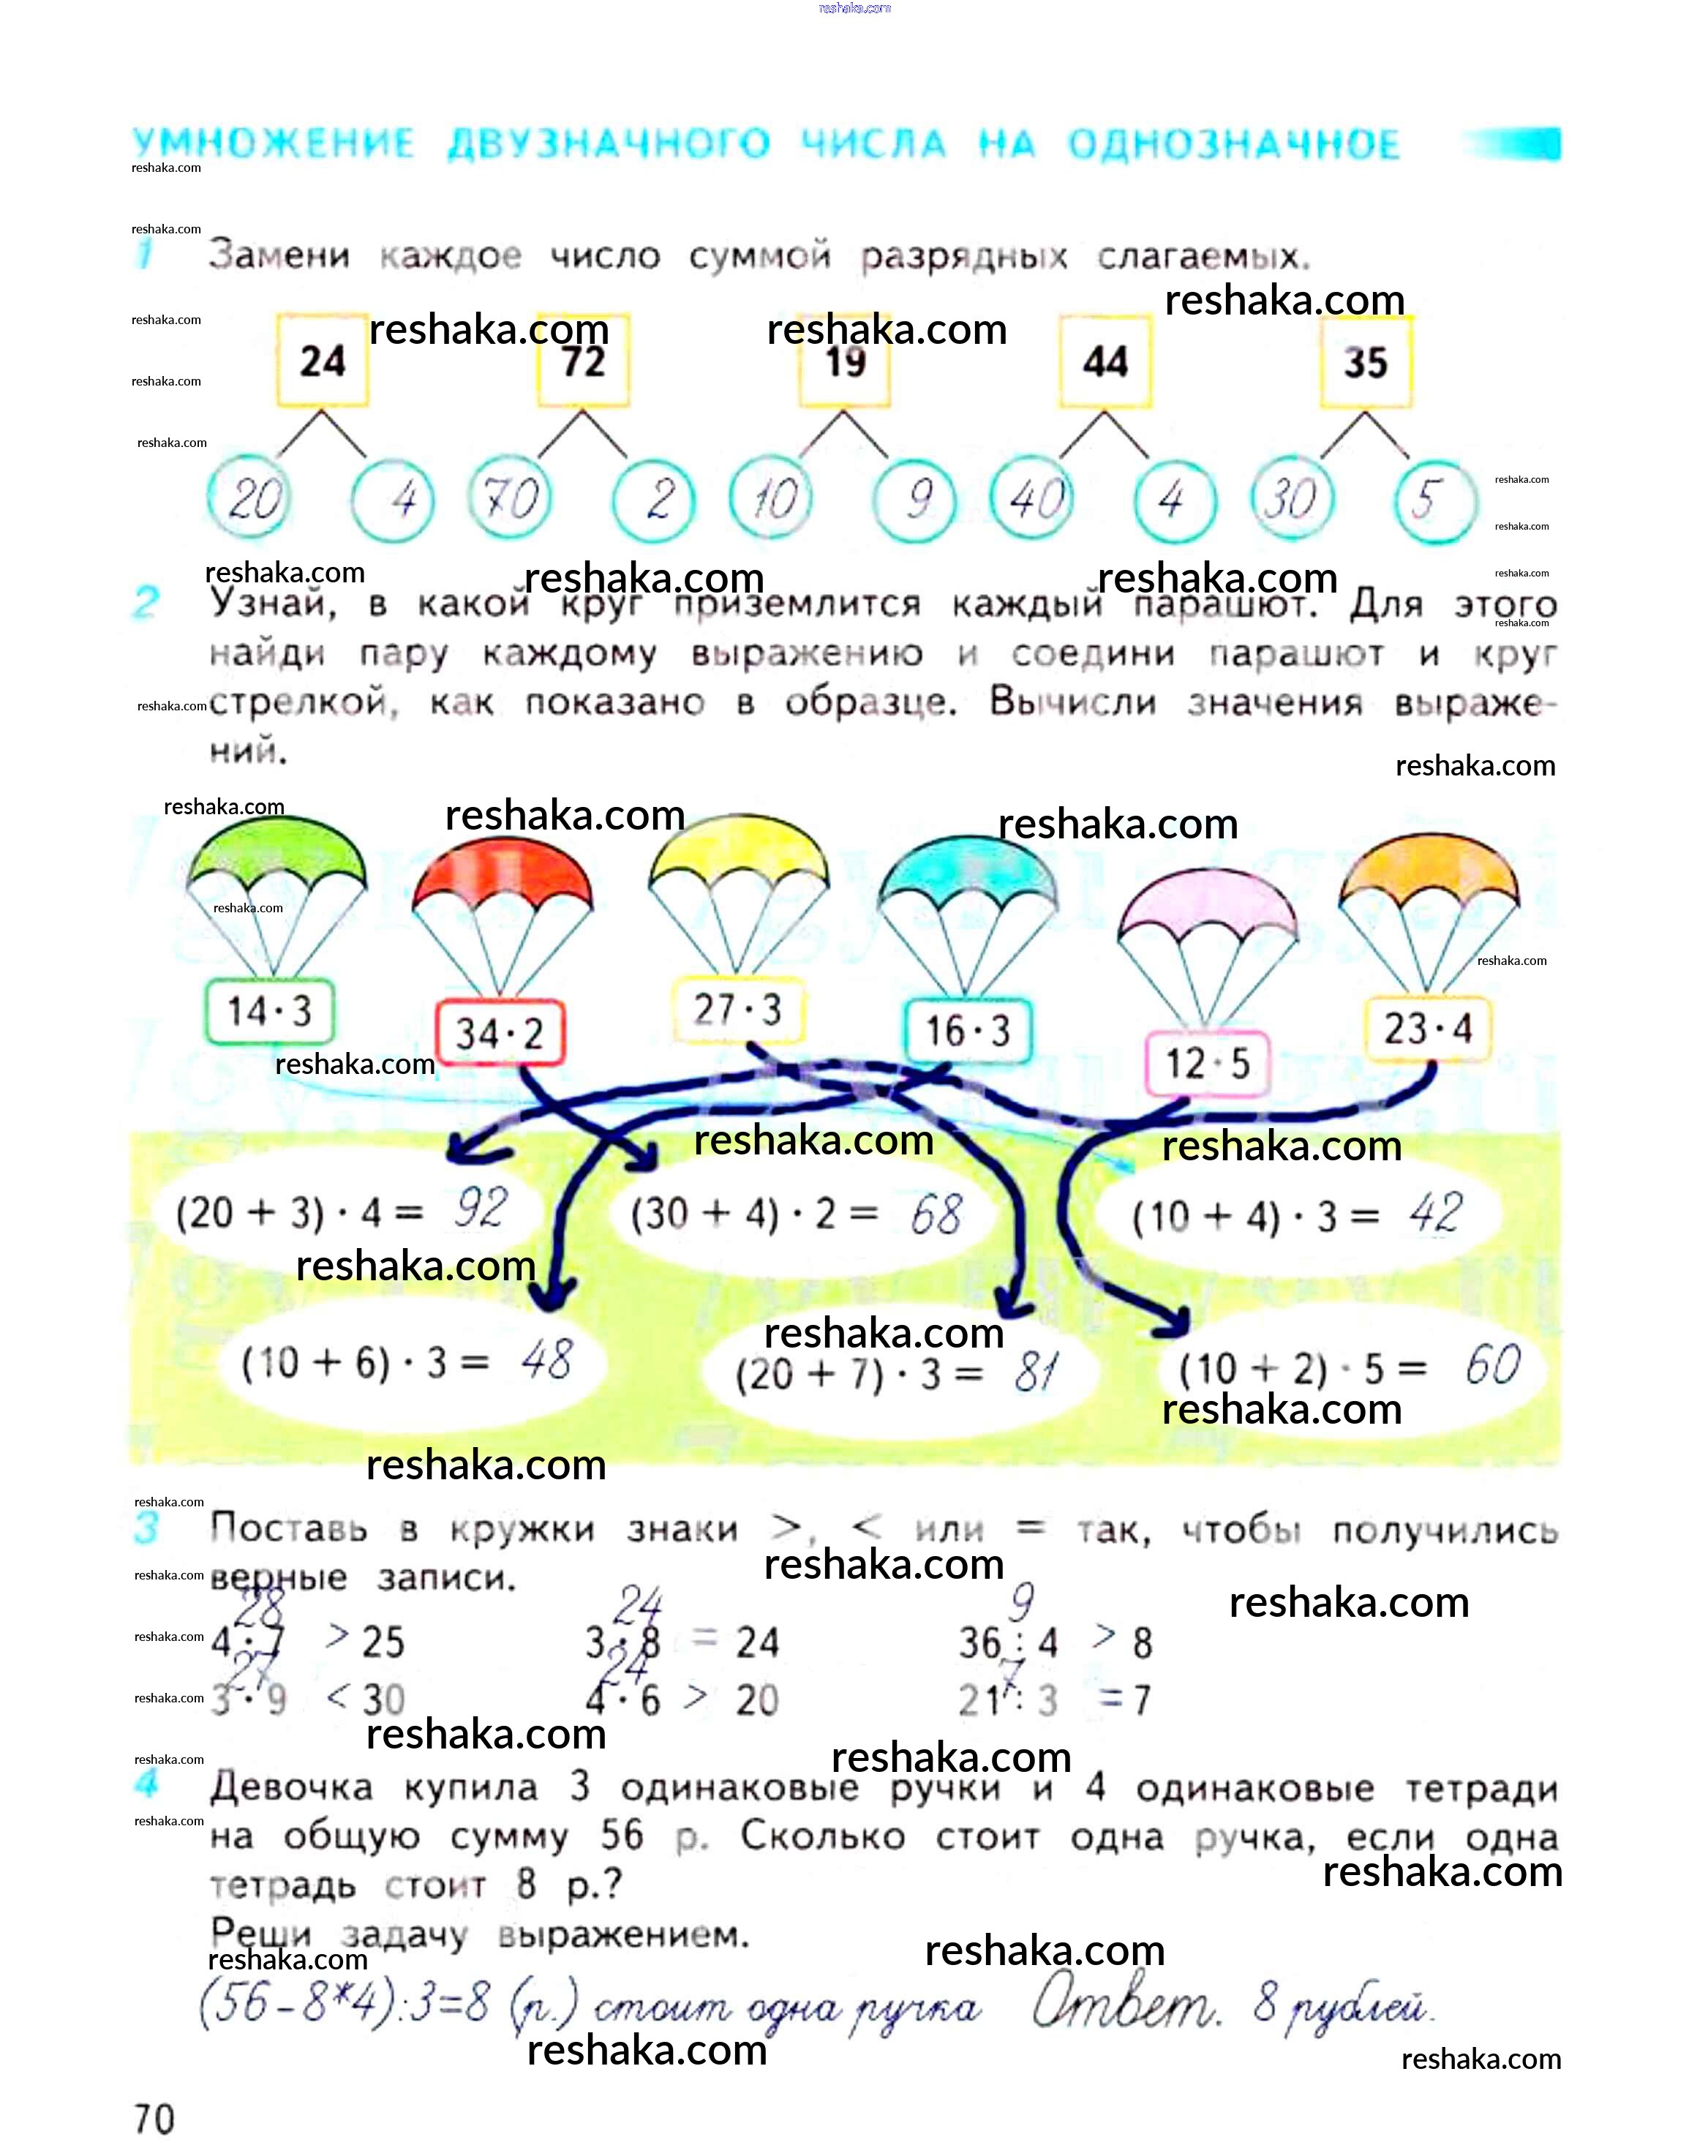 reshaka.com
УМНОЖЕНИЕ ДВУЗНАЧНОГО ЧИСЛА НА ОДНОЗНАЧНОЕ
reshaka.com
reshaka.com
1 Замени каждое число суммой разрядных слагаемых.
reshaka.com
reshaka.com reshaka.com reshaka.com
24 72 19 44 35
reshaka.com
reshaka.com
20 4 70 2 10 9 40 4 30 5
reshaka.com
reshaka.com
reshaka.com reshaka.com reshaka.com reshaka.com
2 Узнай, в какой круг приземлится каждый парашют. Для этого
reshaka.com
найди пару каждому выражению и соедини парашют и круг
reshaka.com стрелкой, как показано в образце. Вычисли значения выраже-
ний.
reshaka.com
reshaka.com reshaka.com reshaka.com
reshaka.com
reshaka.com
14 · 3 34 · 2 27 · 3 16 · 3 12 · 5 23 · 4
reshaka.com
reshaka.com reshaka.com
(20 + 3) · 4 = 92 (30 + 4) · 2 = 68 (10 + 4) · 3 = 42
reshaka.com
reshaka.com
(10 + 6) · 3 = 48 (20 + 7) · 3 = 81 (10 + 2) · 5 = 60
reshaka.com
reshaka.com
reshaka.com
3 Поставь в кружки знаки >, < или = так, чтобы получились
reshaka.com
reshaka.com верные записи.
reshaka.com
28 24 9
reshaka.com 4 · 7 > 25 3 · 8 = 24 36 : 4 > 8
27 24 7
reshaka.com 3 · 9 < 30 4 · 6 > 20 21 : 3 = 7
reshaka.com
reshaka.com reshaka.com
4 Девочка купила 3 одинаковые ручки и 4 одинаковые тетради
reshaka.com
на общую сумму 56 р. Сколько стоит одна ручка, если одна
reshaka.com
тетрадь стоит 8 р.?
Реши задачу выражением.
reshaka.com reshaka.com
(56-8*4):3=8 (р.) стоит одна ручка Ответ. 8 рублей.
reshaka.com reshaka.com
70